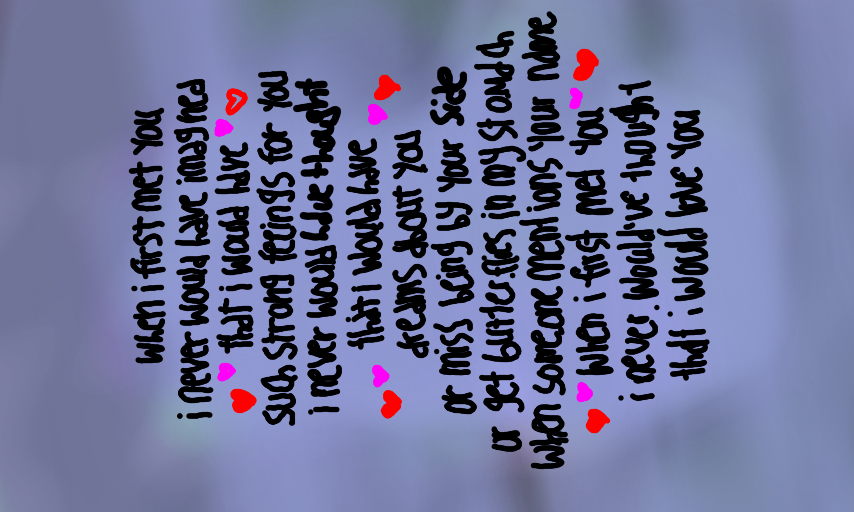 when i first met you
i never would have imagined
that i would have
such strong feelings for you
i never would have thought
that i would have
dreams about you
or miss being by your side
or get butterflies in my stomach
when someone mentions your name
when i first met you
i never would've thought
that i would love you